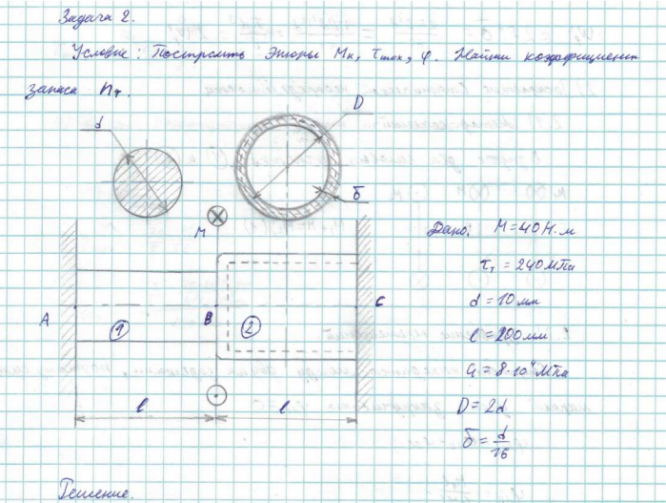 Задача 2.
Условие: Построить эпюры Mк, τmax, φ. Найти коэффициент
запаса nт.
d
D
δ
M
A
1
B
2
C
l
l
Дано: M=40Н·м
τт = 240МПа
d = 10мм
l = 200мм
G = 8·10⁴ МПа
D = 2d
δ = d/16
Решение.